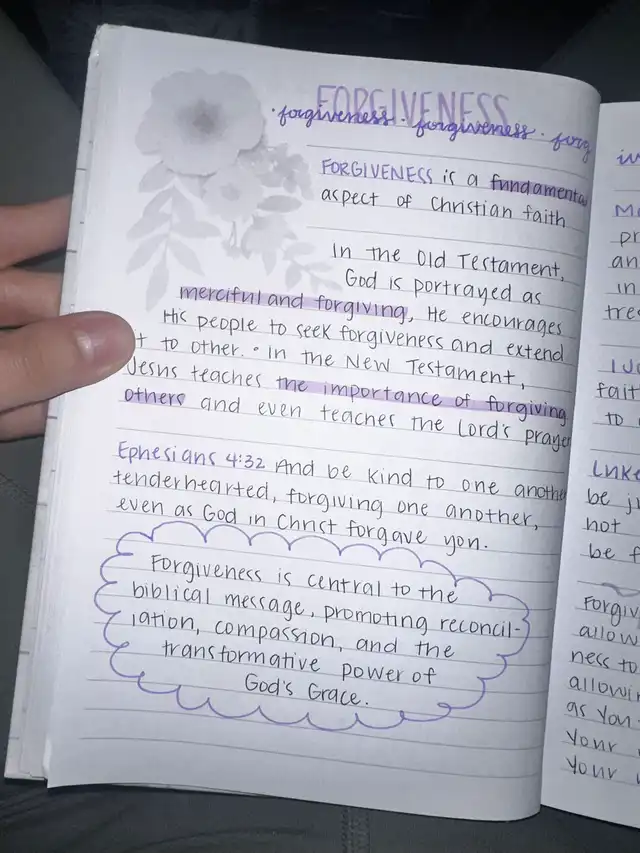 FORGIVENESS
·forgiveness · forgiveness · forg
FORGIVENESS is a fundamenta
aspect of Christian faith
In the Old Testament,
God is portrayed as
merciful and forgiving, He encourages
His people to seek forgiveness and extend
t to other. • In the New Testament,
Jesus teaches the importance of forgiving
others and even teaches the Lord's praye
Ephesians 4:32 And be kind to one anothe
tenderhearted, forgiving one another,
even as God in Christ forgave you.
Forgiveness is central to the
biblical message, promoting reconcil-
iation, compassion, and the
transformative power of
God's Grace.
pr
an
in
tree
fait
to
Luke
be ju
not
be f
Forgiv
allow
ness to
allowi
as you
your
your